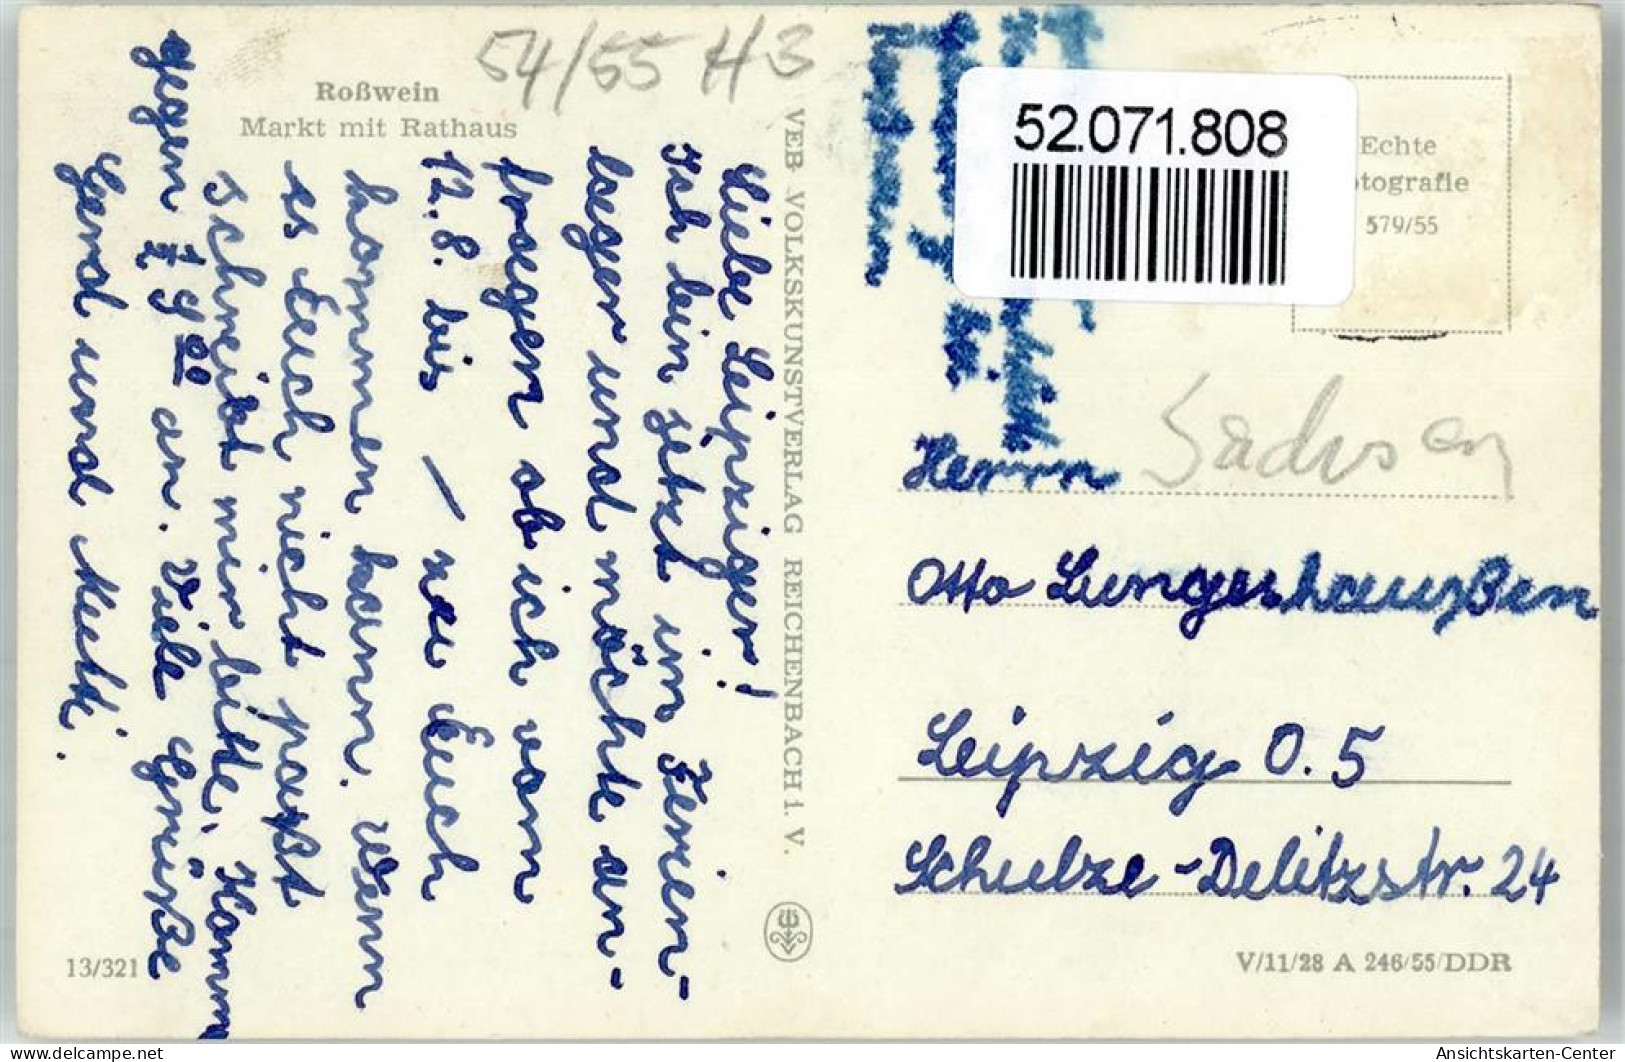 54/55 H3
Roßwein
Markt mit Rathaus
Liebe Leipziger!
Ich bin jetzt im Ferien-
lager und möchte an-
fragen ob ich vom
12.8. bis / zu Euch
kommen kann. Wenn
es Euch nicht paßt
schreibt mir bitte. Komm
gegen ½ 19 00 an. Viele Grüße
Gerd und Mutti.
13/321
VEB VOLKSKUNSTVERLAG REICHENBACH i. V.
52.071.808
Echte
tografie
579/55
Sachsen
Herrn
Otto Lungershaußen
Leipzig O. 5
Schulze-Delitzstr. 24
V/11/28 A 246/55/DDR
delcampe.net
Ansichtskarten-Center